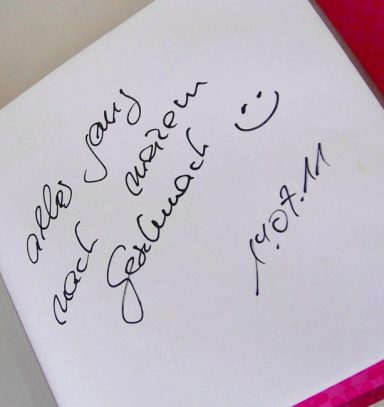 alles ganz
nach meinem
Geschmack
14.07.11